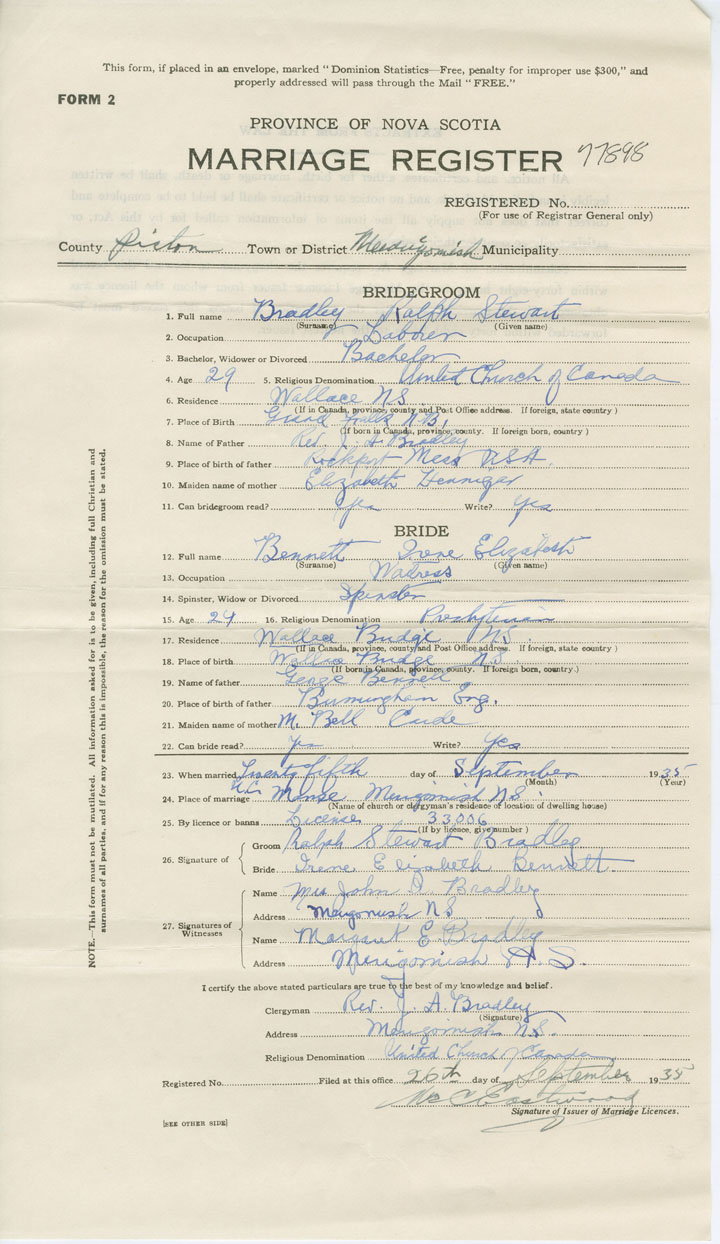 This form, if placed in an envelope, marked "Dominion Statistics—Free, penalty for improper use $300," and
properly addressed will pass through the Mail "FREE."
FORM 2
PROVINCE OF NOVA SCOTIA
MARRIAGE REGISTER 77898
REGISTERED No.
(For use of Registrar General only)
County Pictou Town or District Merigomish Municipality
BRIDEGROOM
1. Full name Bradley Ralph Stewart
(Surname) (Given name)
2. Occupation Laborer
3. Bachelor, Widower or Divorced Bachelor
4. Age 29 5. Religious Denomination United Church of Canada
6. Residence Wallace N.S.
(If in Canada, province, county and Post Office address. If foreign, state country)
7. Place of Birth Grand Falls N.B.
(If born in Canada, province, county. If foreign born, country)
8. Name of Father Rev. J. A. Bradley
9. Place of birth of father Rockport Mass U.S.A.
10. Maiden name of mother Elizabeth Hennigar
11. Can bridegroom read? Yes Write? Yes
BRIDE
12. Full name Bennett Irene Elizabeth
(Surname) (Given name)
13. Occupation Waitress
14. Spinster, Widow or Divorced Spinster
15. Age 24 16. Religious Denomination Presbyterian
17. Residence Wallace Bridge N.S.
(If in Canada, province, county and Post Office address. If foreign, state country)
18. Place of birth Wallace Bridge N.S.
(If born in Canada, province, county. If foreign born, country.)
19. Name of father George Bennett
20. Place of birth of father Burmingham Eng.
21. Maiden name of mother M. Bell
22. Can bride read? Yes Write? Yes
23. When married Twenty fifth day of September 1935
(Month) (Year)
24. Place of marriage U.C. Manse Merigomish N.S.
(Name of church or clergyman's residence or location of dwelling house)
25. By licence or banns License 33006
(If by licence, give number)
26. Signature of
Groom Ralph Stewart Bradley
Bride Irene Elizabeth Bennett
27. Signatures of Witnesses
Name Mrs John A. Bradley
Address Merigomish N S
Name Margaret E. Bradley
Address Merigomish N.S.
I certify the above stated particulars are true to the best of my knowledge and belief.
Clergyman Rev. J. A. Bradley
(Signature)
Address Merigomish N.S.
Religious Denomination United Church of Canada
Registered No. Filed at this office 26th day of September 1935
Eastwood
Signature of Issuer of Marriage Licences.
[SEE OTHER SIDE]
NOTE.—This form must not be mutilated. All information asked for is to be given, including full Christian and
surnames of all parties, and if for any reason this is impossible, the reason for the omission must be stated.